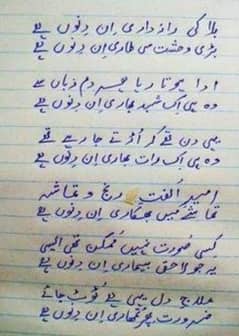 بلا کی راز داری اِن دِنوں ہے
بڑی وحشت سی طاری اِن دِنوں ہے
ادا ہوتا رہا جسے دم زباں سے
وہ ہی اِک شبد بھاری اِن دِنوں ہے
یہی دن تھے کہ اُڑتے جا رہے تھے
وہ ہی اِک رات بھاری اِن دِنوں ہے
امیرِ اُلفت رنج و تماشہ
تماشے میں بھکاری اِن دِنوں ہے
کِسی صُورت نہیں مُمکن تھی ایسی
یہ جو لاحق بیماری اِن دِنوں ہے
علاجِ دل یہی ہے ٹُوٹ جائے
ضرورت پھر تمھاری اِن دِنوں ہے